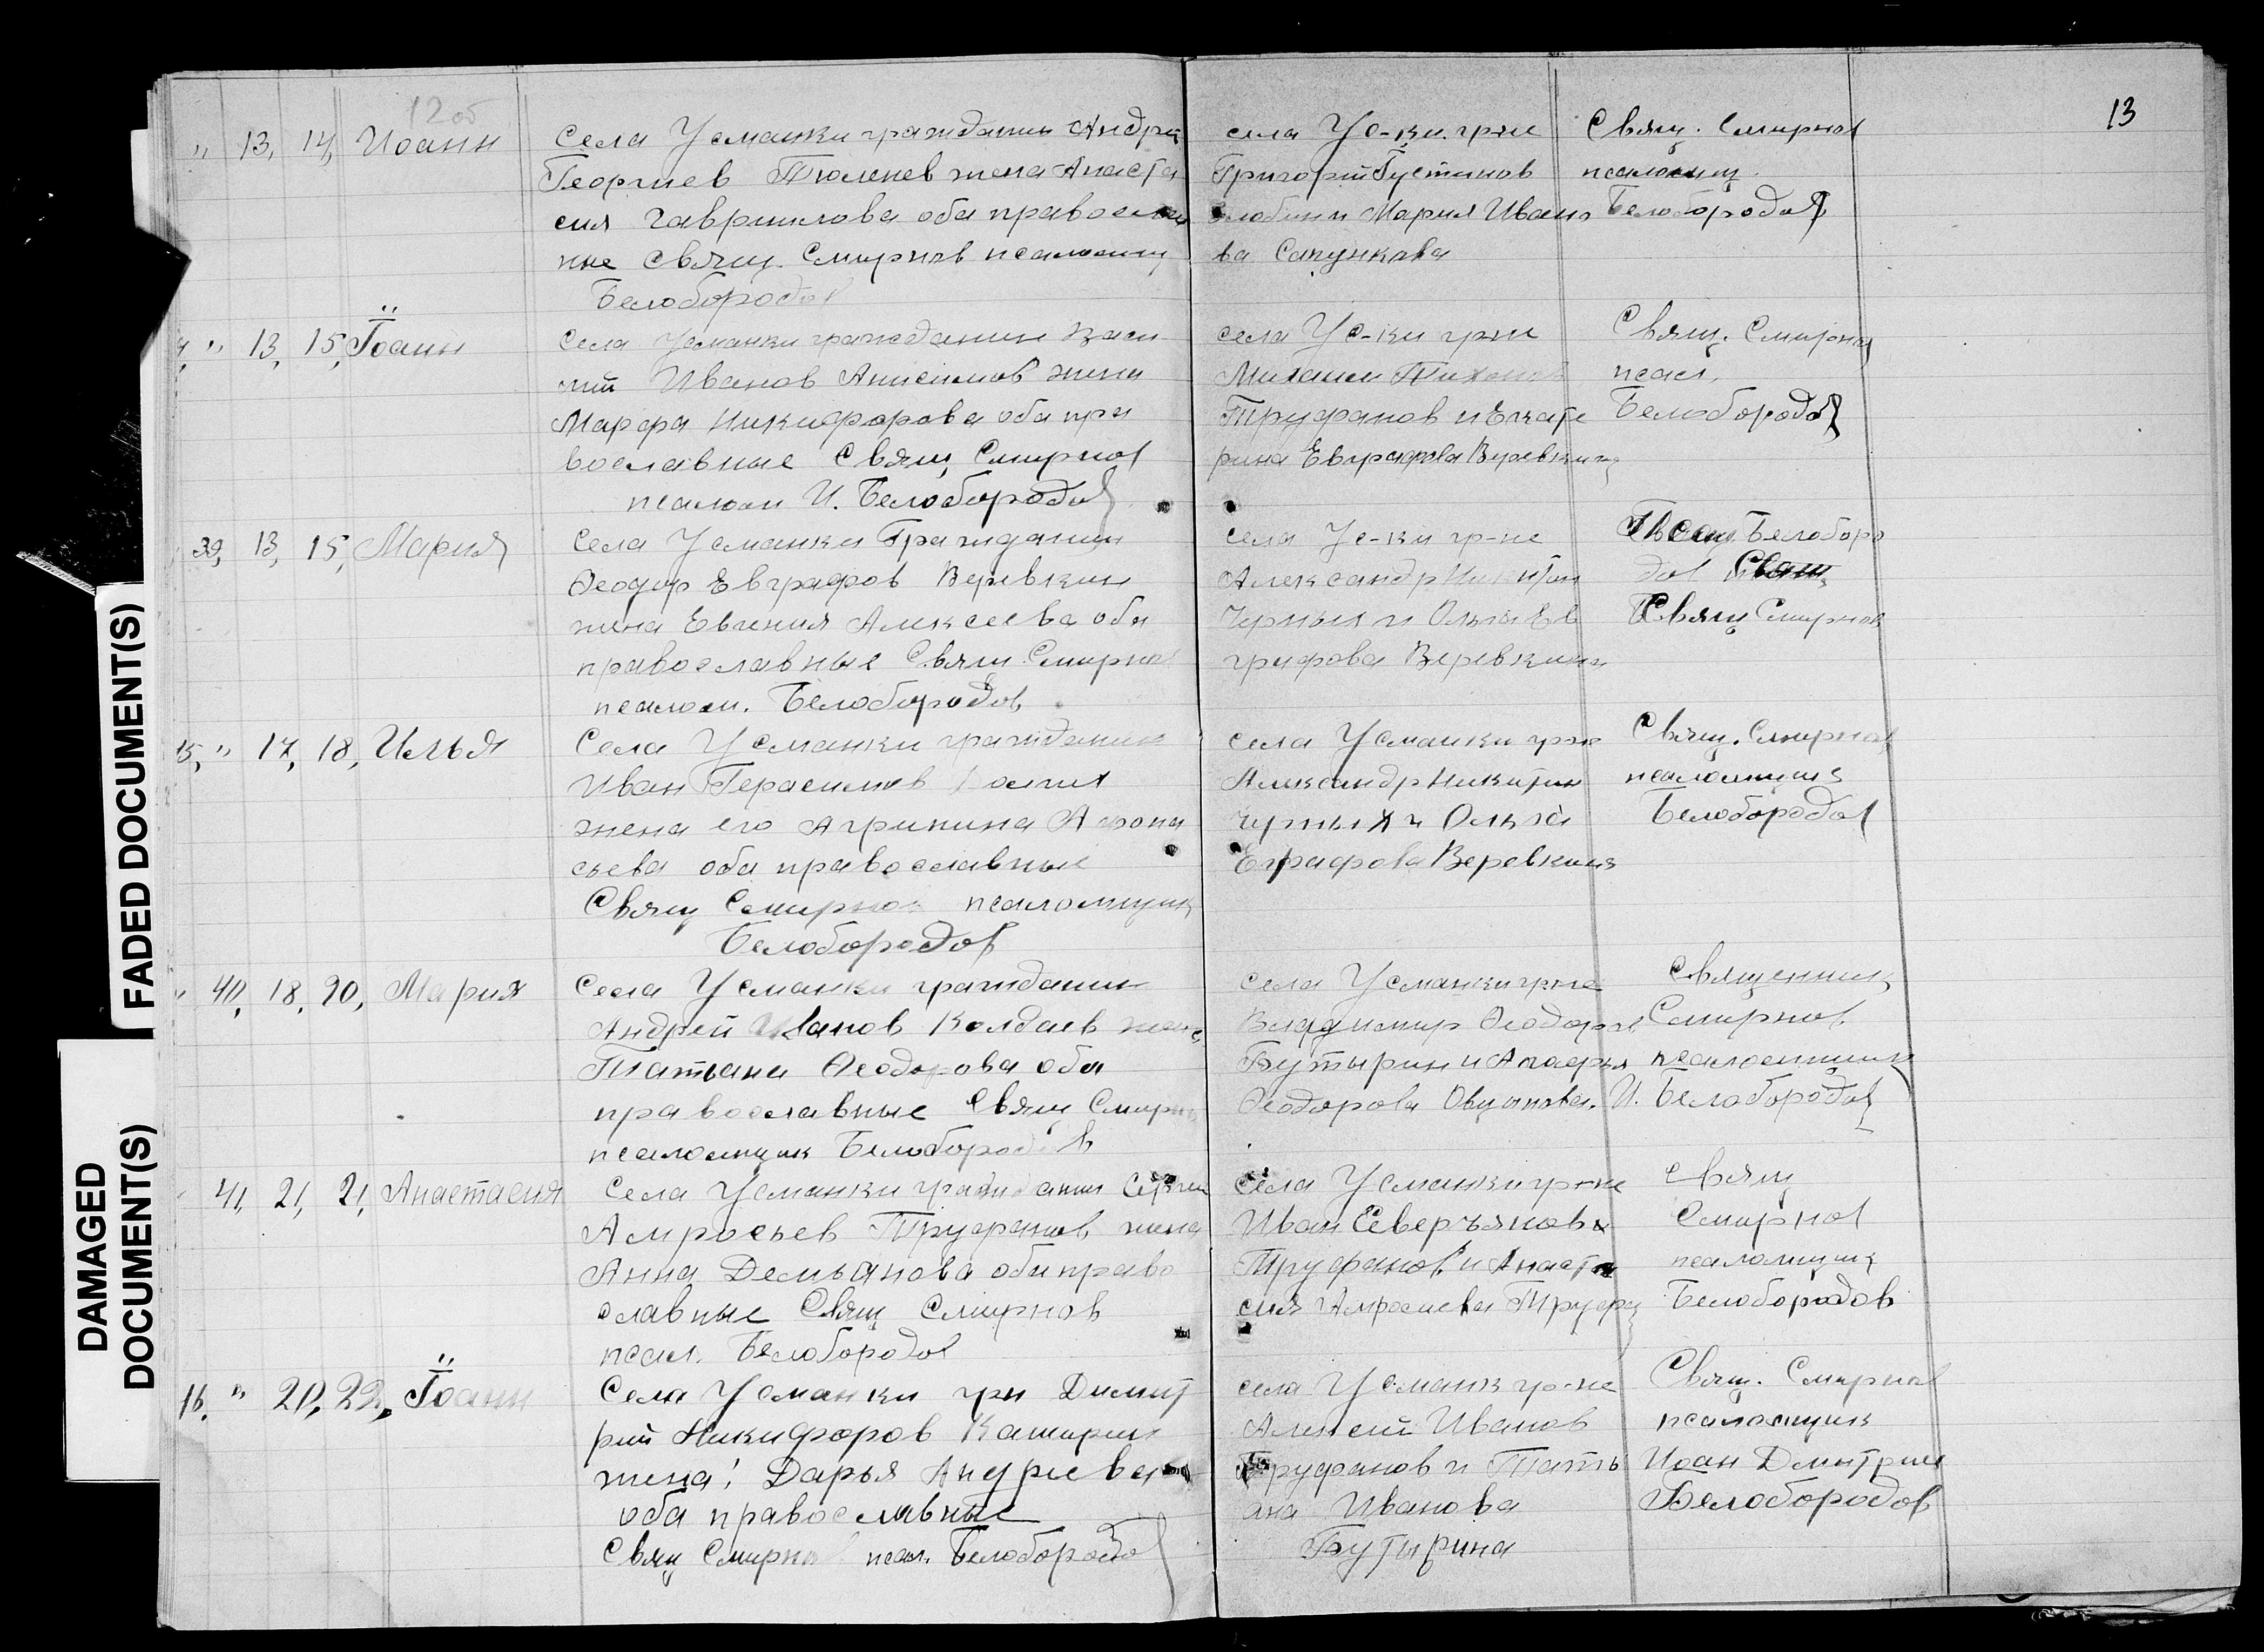 DAMAGED
DOCUMENT(S)
FADED DOCUMENT(S)
12 об
13
" 13, 14, Иоанн
Села Усманки гражданин Андрей
Георгиев Тюленев жена Анаста
сия Гаврилова оба православ
ные Свящ. Смирнов псаломщ
Белобородов
села Ус-ки гр-не
Григорий Густинов
и Мария Ивано
ва Сапункова
Свящ. Смирнов
псаломщ.
Белобородов
" 13, 15, Іоанн
Села Усманки гражданин Васи
лий Иванов Анисимов жена
Марфа Никифорова оба пра
вославные Свящ Смирнов
псалом И. Белобородов
села Ус-ки гр-не
Михаил Тихонов
Труфанов и Екате
рина Евграфова Веревкина
Свящ. Смирнов
псал.
Белобородов
39, 13, 15, Мария
Села Усманки Гражданин
Феодор Евграфов Веревкин
жена Евгения Алексеева оба
православные Свящ. Смирнов
псалом. Белобородов
села Ус-ки гр-не
Александр Никитин
Черных и Ольга Ев
графова Веревкина
Белоборо
дов
Свящ Смирнов
15, " 17, 18, Илья
Села Усманки гражданин
Иван Герасимов
жена его Агрипина Афона
сьева оба православные
Свящ Смирнов псаломщик
Белобородов
села Усманки гр-не
Александр Никитин
Черных и Ольга
Еграфова Веревкина
Свящ. Смирнов
псаломщик
Белобородов
" 40, 18, 20, Мария
Села Усманки гражданин
Андрей Иванов Колдаев жена
Татьана Феодорова оба
православные Свящ Смирнов
псаломщик Белобородов
села Усманки гр-не
Владимир Феодоров
Бутырин и Агафья
Феодорова Овцынова.
Священник
Смирнов
псаломщик
И. Белобородов
41, 21, 21, Анастасия
Села Усманки гражданин Сергей
Амросьев Труфанов жена
Анна Демьянова оба право
славные Свящ Смирнов
псал. Белобородов
Села Усманки гр-не
Иван Северъянов
Труфанов и Анаста
сия Амросиева Труфа
Свящ
Смирнов
псаломщик
Белобородов
16, " 21, 22, Іоанн
Села Усманки грн Димит
рий Никифоров Каширин
жена: Дарья Андриева
оба православные
Свящ Смирнов псал. Белобородов
села Усманк гр-не
Алексей Иванов
Труфанов и Тать
ана Иванова
Бутырина
Свящ. Смирнов
псаломщик
Иоан Дмитриев
Белобородов